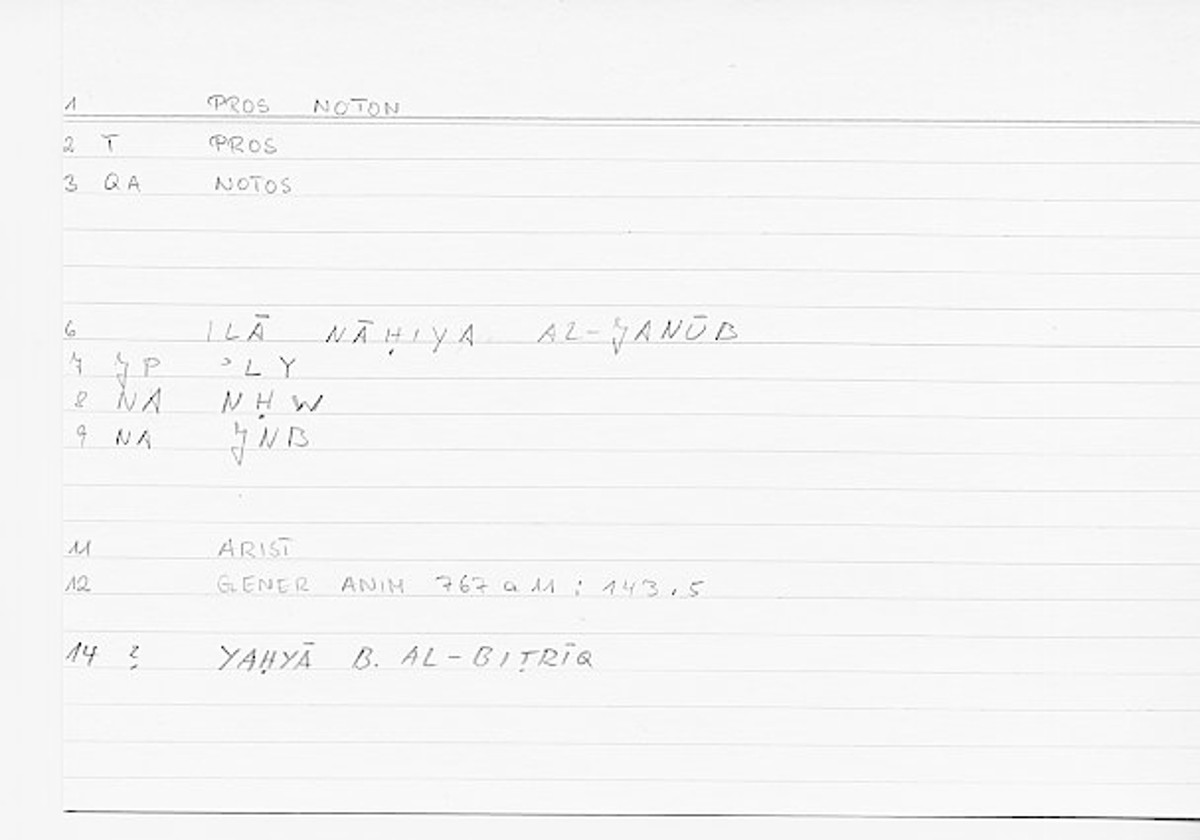 1 PROS NOTON
2 T PROS
3 QA NOTOS
6 ILĀ NĀḤIYA AL-JANŪB
7 JP ʾLY
8 NA NḤW
9 NA JNB
11 ARIST
12 GENER ANIM 767 a 11 : 143.5
14 ? YAḤYĀ B. AL-BIṬRĪQ